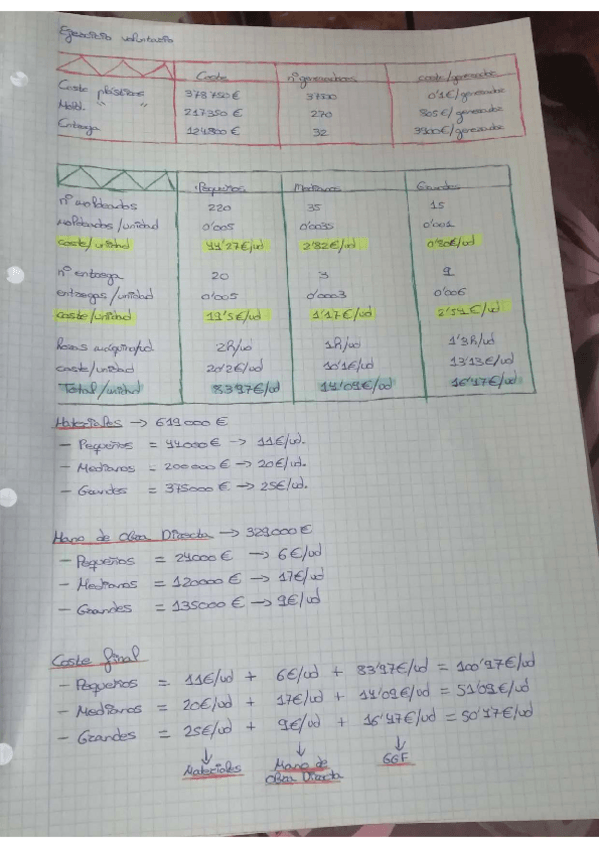 Ejercicio voluntario
Coste nº generadores coste/generador
Coste plásticos 378750€ 37500 0'1€/generador
Mold. " " 217350€ 270 805€/generador
Entrega 124800€ 32 3900€/generador
Pequeños Medianos Grandes
nº moldeados 220 35 15
Moldeados/unidad 0'005 0'0035 0'001
coste/unidad 44'27€/ud 2'82€/ud 0'80€/ud
nº entrega 20 3 9
entregas/unidad 0'005 0'0003 0'006
coste/unidad 19'5€/ud 1'17€/ud 2'34€/ud
Horas máquina/ud 2h/ud 1h/ud 1'3h/ud
coste/unidad 20'2€/ud 10'1€/ud 13'13€/ud
Total/unidad 83'97€/ud 14'09€/ud 16'47€/ud
Materiales → 619000€
– Pequeños = 44000€ → 11€/ud.
– Medianos = 200000€ → 20€/ud.
– Grandes = 375000€ → 25€/ud.
Mano de Obra Directa → 329000€
– Pequeños = 24000€ → 6€/ud
– Medianos = 120000€ → 17€/ud
– Grandes = 135000€ → 9€/ud
Coste final
– Pequeños = 11€/ud + 6€/ud + 83'97€/ud = 100'97€/ud
– Medianos = 20€/ud + 17€/ud + 14'09€/ud = 51'09€/ud
– Grandes = 25€/ud + 9€/ud + 16'47€/ud = 50'47€/ud
↓ ↓ ↓
Materiales Mano de GGF
obra Directa